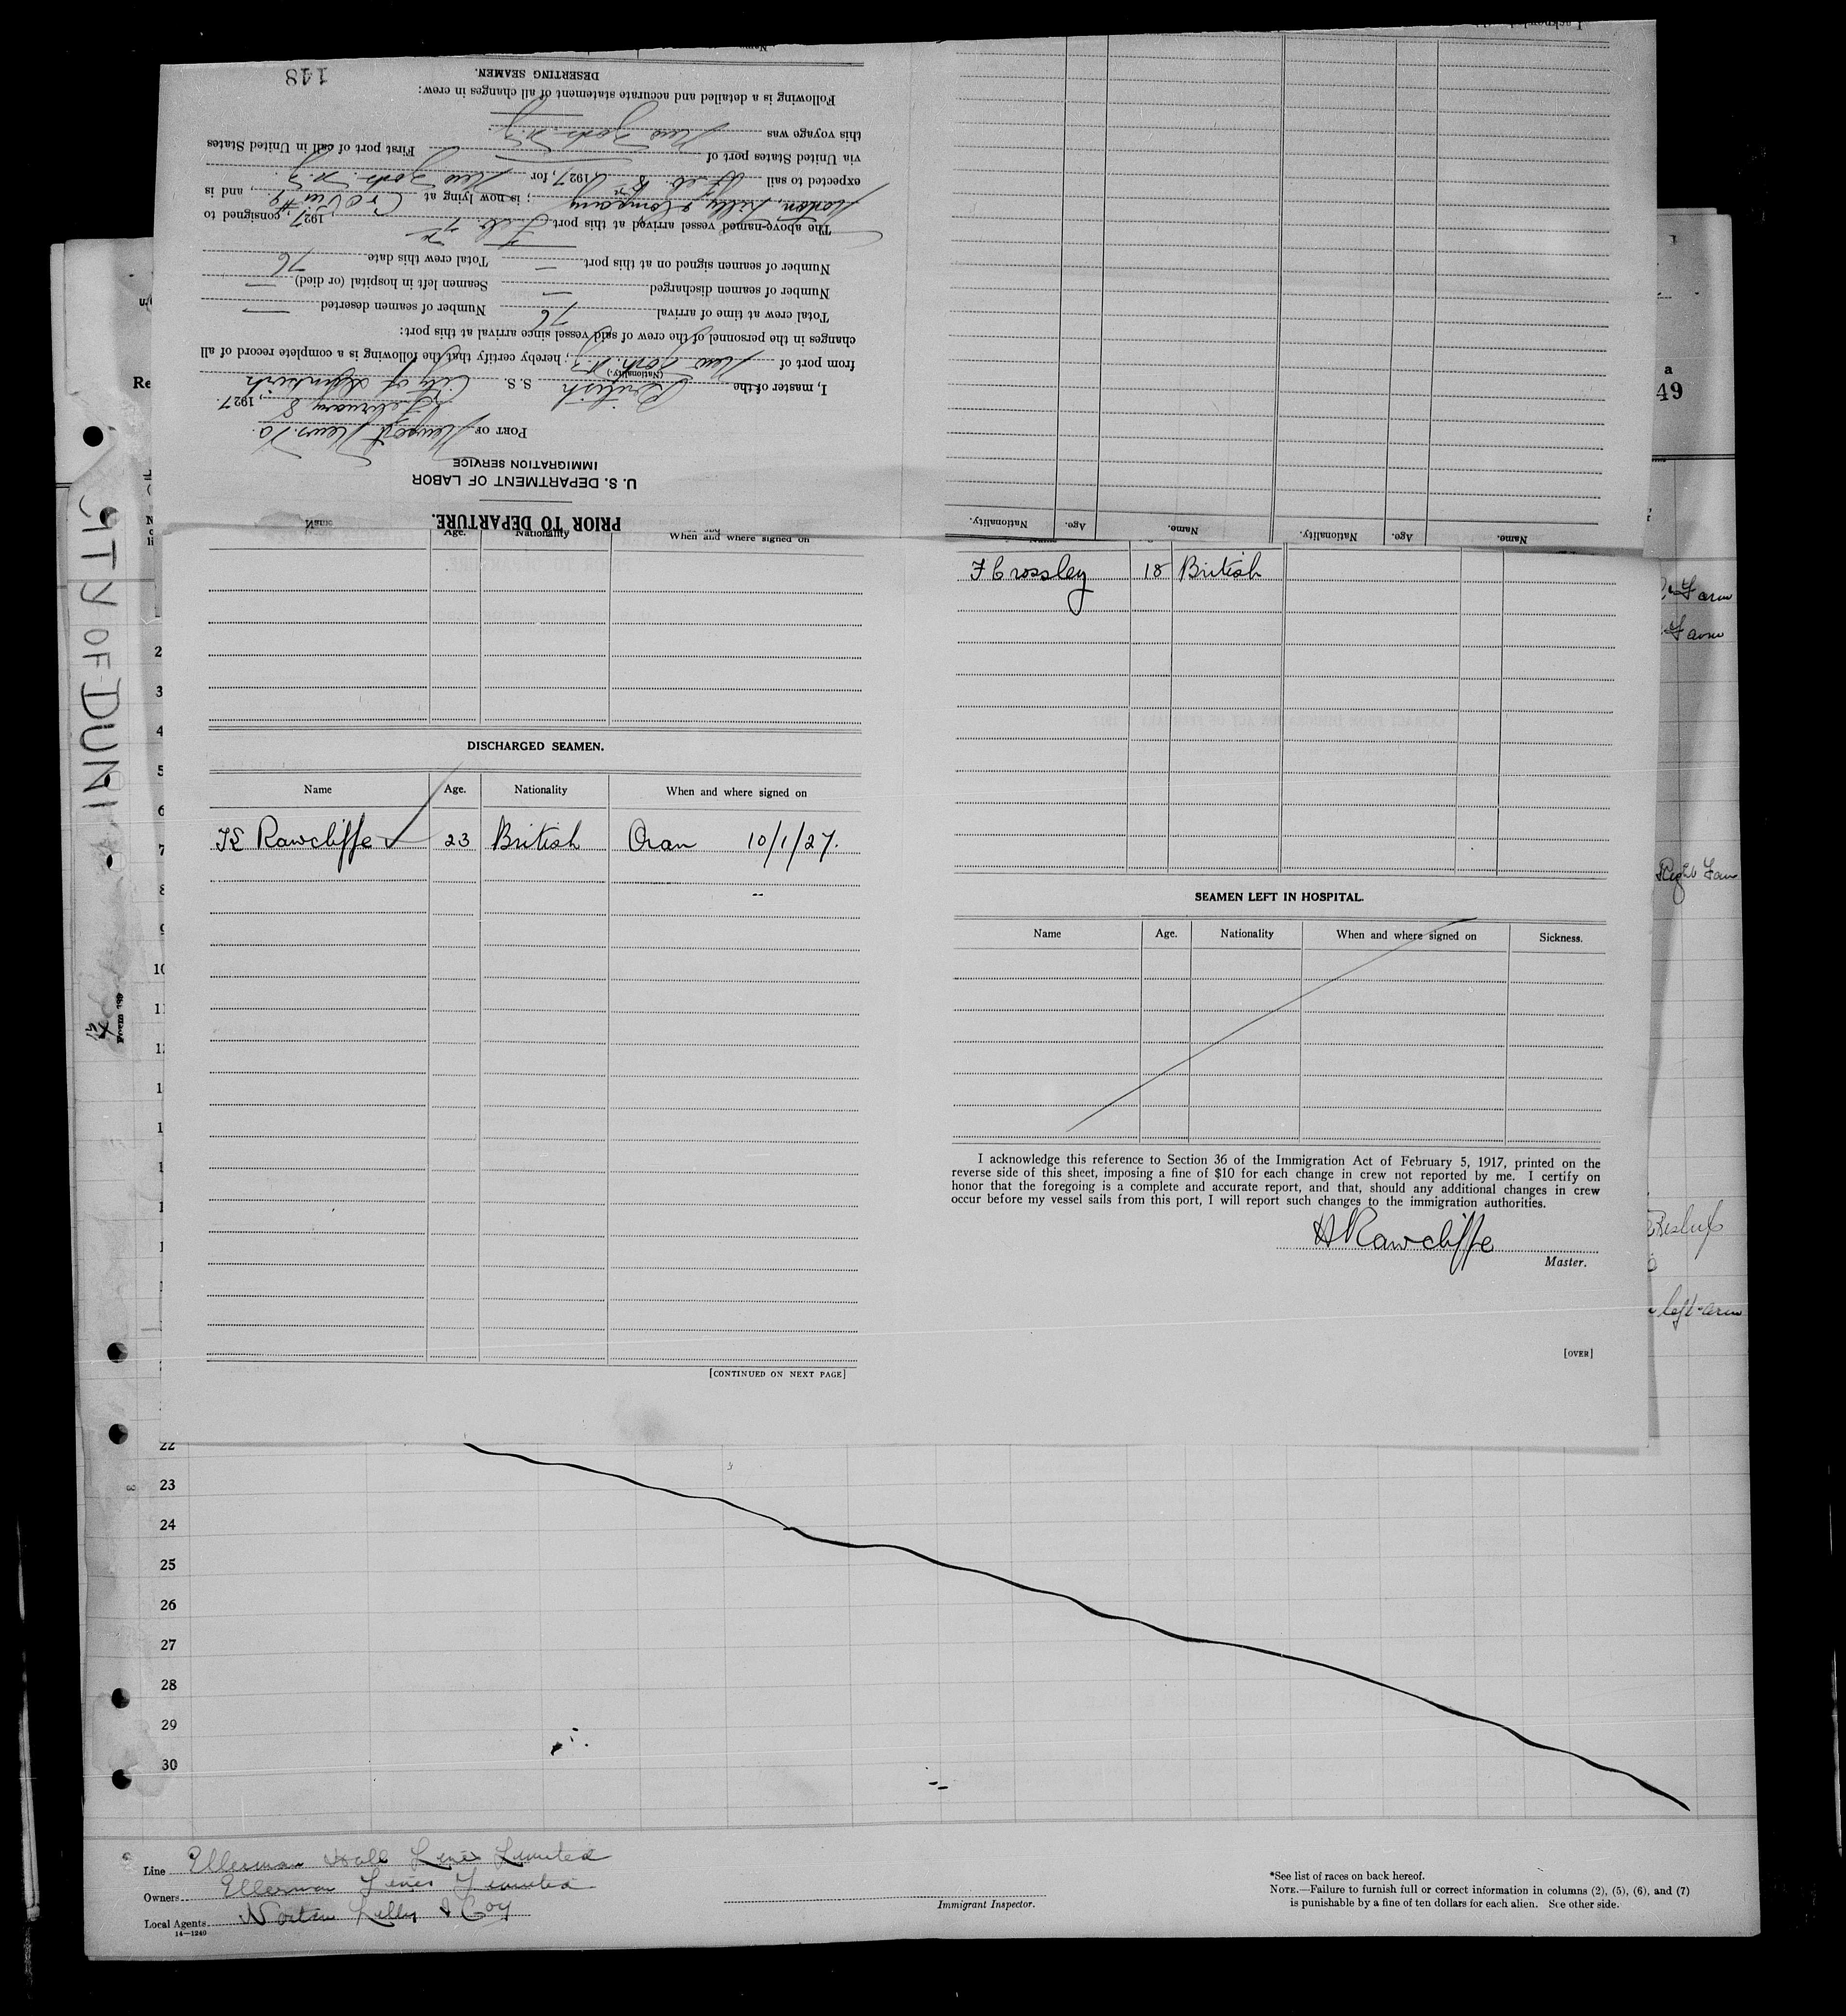 148
DESERTING SEAMEN.
Following is a detailed and accurate statement of all changes in crew:
this voyage was New York. N.Y.
via United States port of First port of call in United States
expected to sail Feb. 8 1927, for New York. N.Y.
Norton, Lilly & Company; is now lying at and is
The above-named vessel arrived at this port Feb 7 1927, consigned to
Number of seamen signed on at this port — Total crew this date 76
Number of seamen discharged — Seamen left in hospital (or died) —
Total crew at time of arrival 76 Number of seamen deserted —
changes in the personnel of the crew of said vessel since arrival at this port:
from port of New York N.Y.; hereby certify that the following is a complete record of all
(Nationality.)
I, master of the British S. S. City of
February 8, 1927.
PORT OF Newport News. Va.
IMMIGRATION SERVICE
U. S. DEPARTMENT OF LABOR
PRIOR TO DEPARTURE.
Name. Age. Nationality. Name. Age. Nationality.
Age. Nationality When and where signed on
F Crossley 18 British
DISCHARGED SEAMEN.
Name Age. Nationality When and where signed on
Rawcliffe 23 British Oran 10/1/27.
[CONTINUED ON NEXT PAGE]
SEAMEN LEFT IN HOSPITAL.
Name Age. Nationality When and where signed on Sickness.
I acknowledge this reference to Section 36 of the Immigration Act of February 5, 1917, printed on the
reverse side of this sheet, imposing a fine of $10 for each change in crew not reported by me. I certify on
honor that the foregoing is a complete and accurate report, and that, should any additional changes in crew
occur before my vessel sails from this port, I will report such changes to the immigration authorities.
H Rawcliffe
Master.
[OVER]
CITY OF DUN
Re
a
49
Right
left arm
2
3
4
5
6
7
8
9
10
11
22
23
24
25
26
27
28
29
30
Line Ellerman Hall Line Limited
Owners Ellerman Lines Limited
Local Agents Norton Lilly & Coy
14—1240
Immigrant Inspector.
*See list of races on back hereof.
NOTE.—Failure to furnish full or correct information in columns (2), (5), (6), and (7)
is punishable by a fine of ten dollars for each alien. See other side.